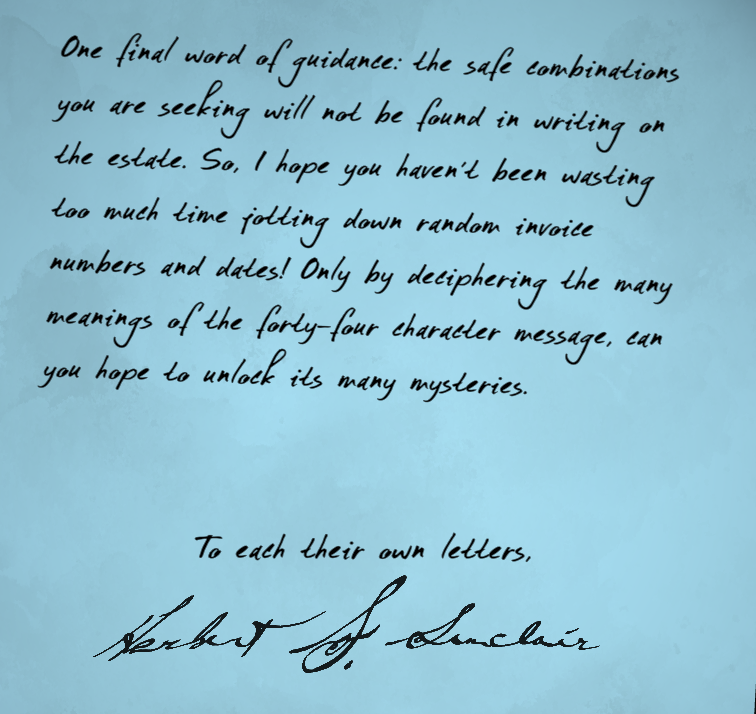 One final word of guidance: the safe combinations
you are seeking will not be found in writing on
the estate. So, I hope you haven't been wasting
too much time jotting down random invoice
numbers and dates! Only by deciphering the many
meanings of the forty-four character message, can
you hope to unlock its many mysteries.
To each their own letters,
Herbert S. Sinclair